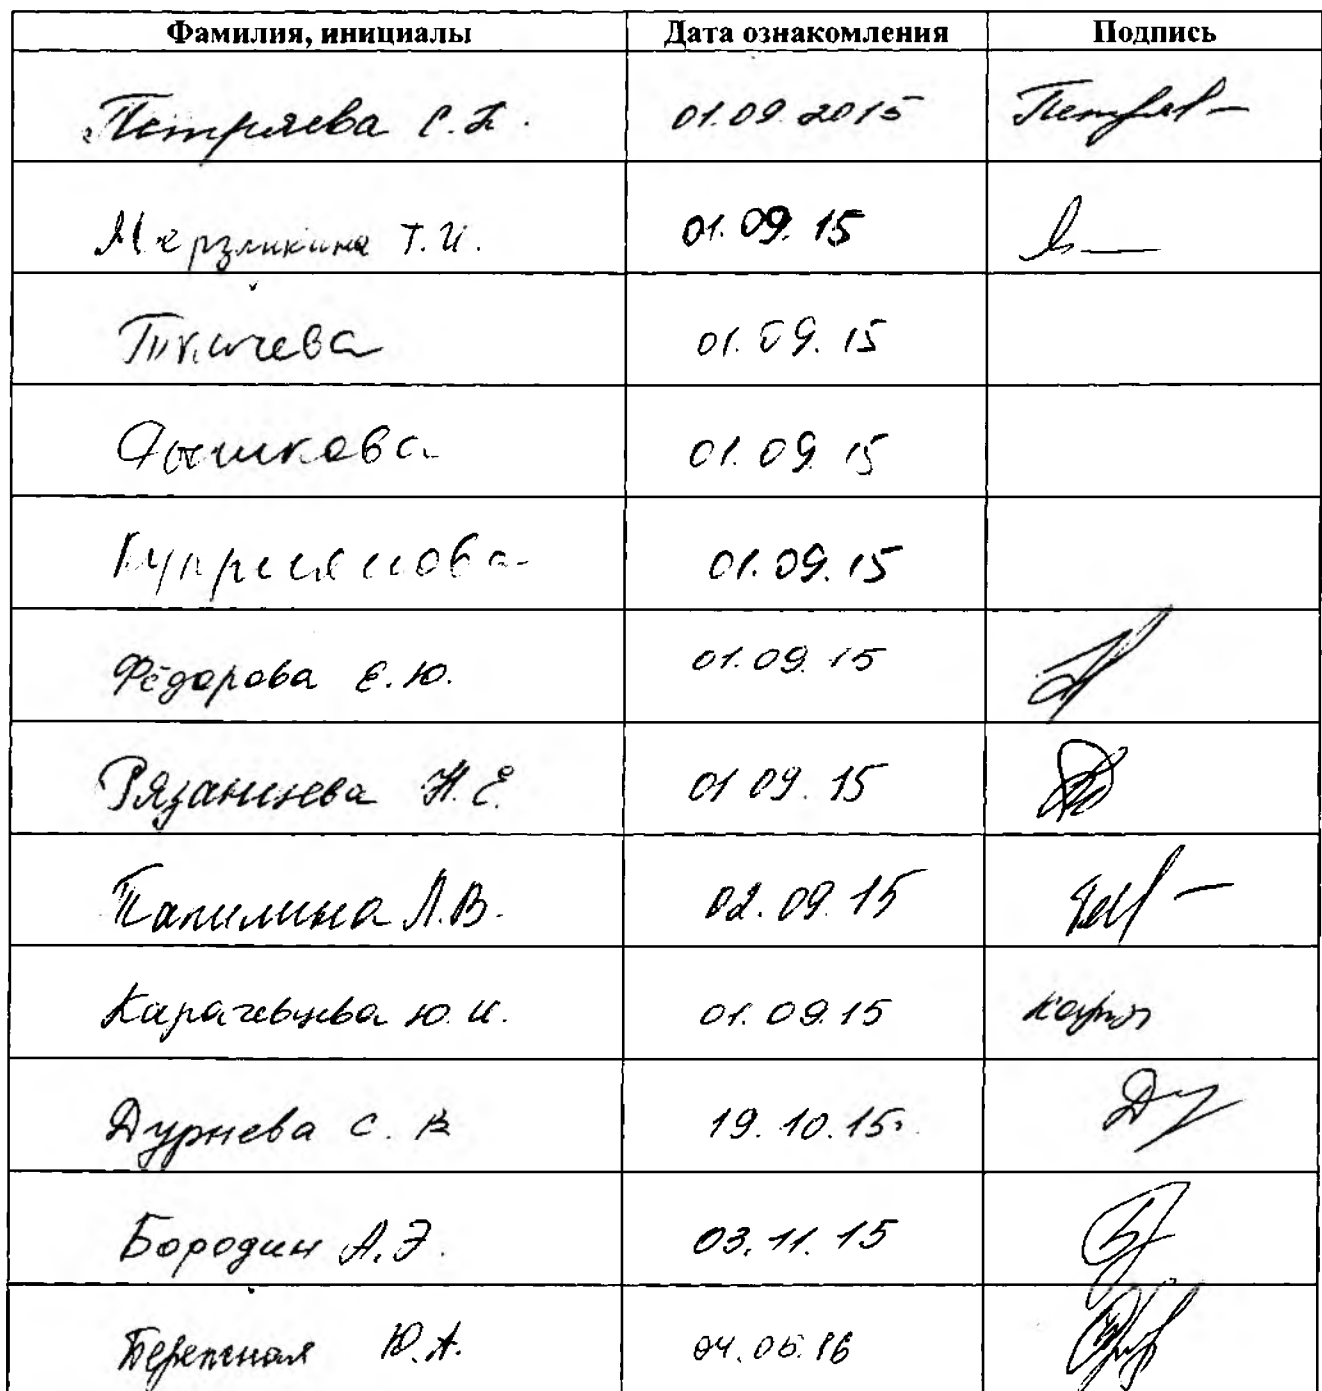 Фамилия, инициалы Дата ознакомления Подпись
Петряева С. 01.09.2015
Мерзликина Т.И. 01.09.15
Ткачева 01.09.15
01.09.15
Куприянова 01.09.15
Фёдорова Е.Ю. 01.09.15
Рязанцева Н.Е. 01 09. 15
Папилина Л.В. 02.09.15
Карачевцева Ю.И. 01.09.15
Дурнева С. В 19.10.15.
Бородин А.Э. 03.11.15
Ю.А.